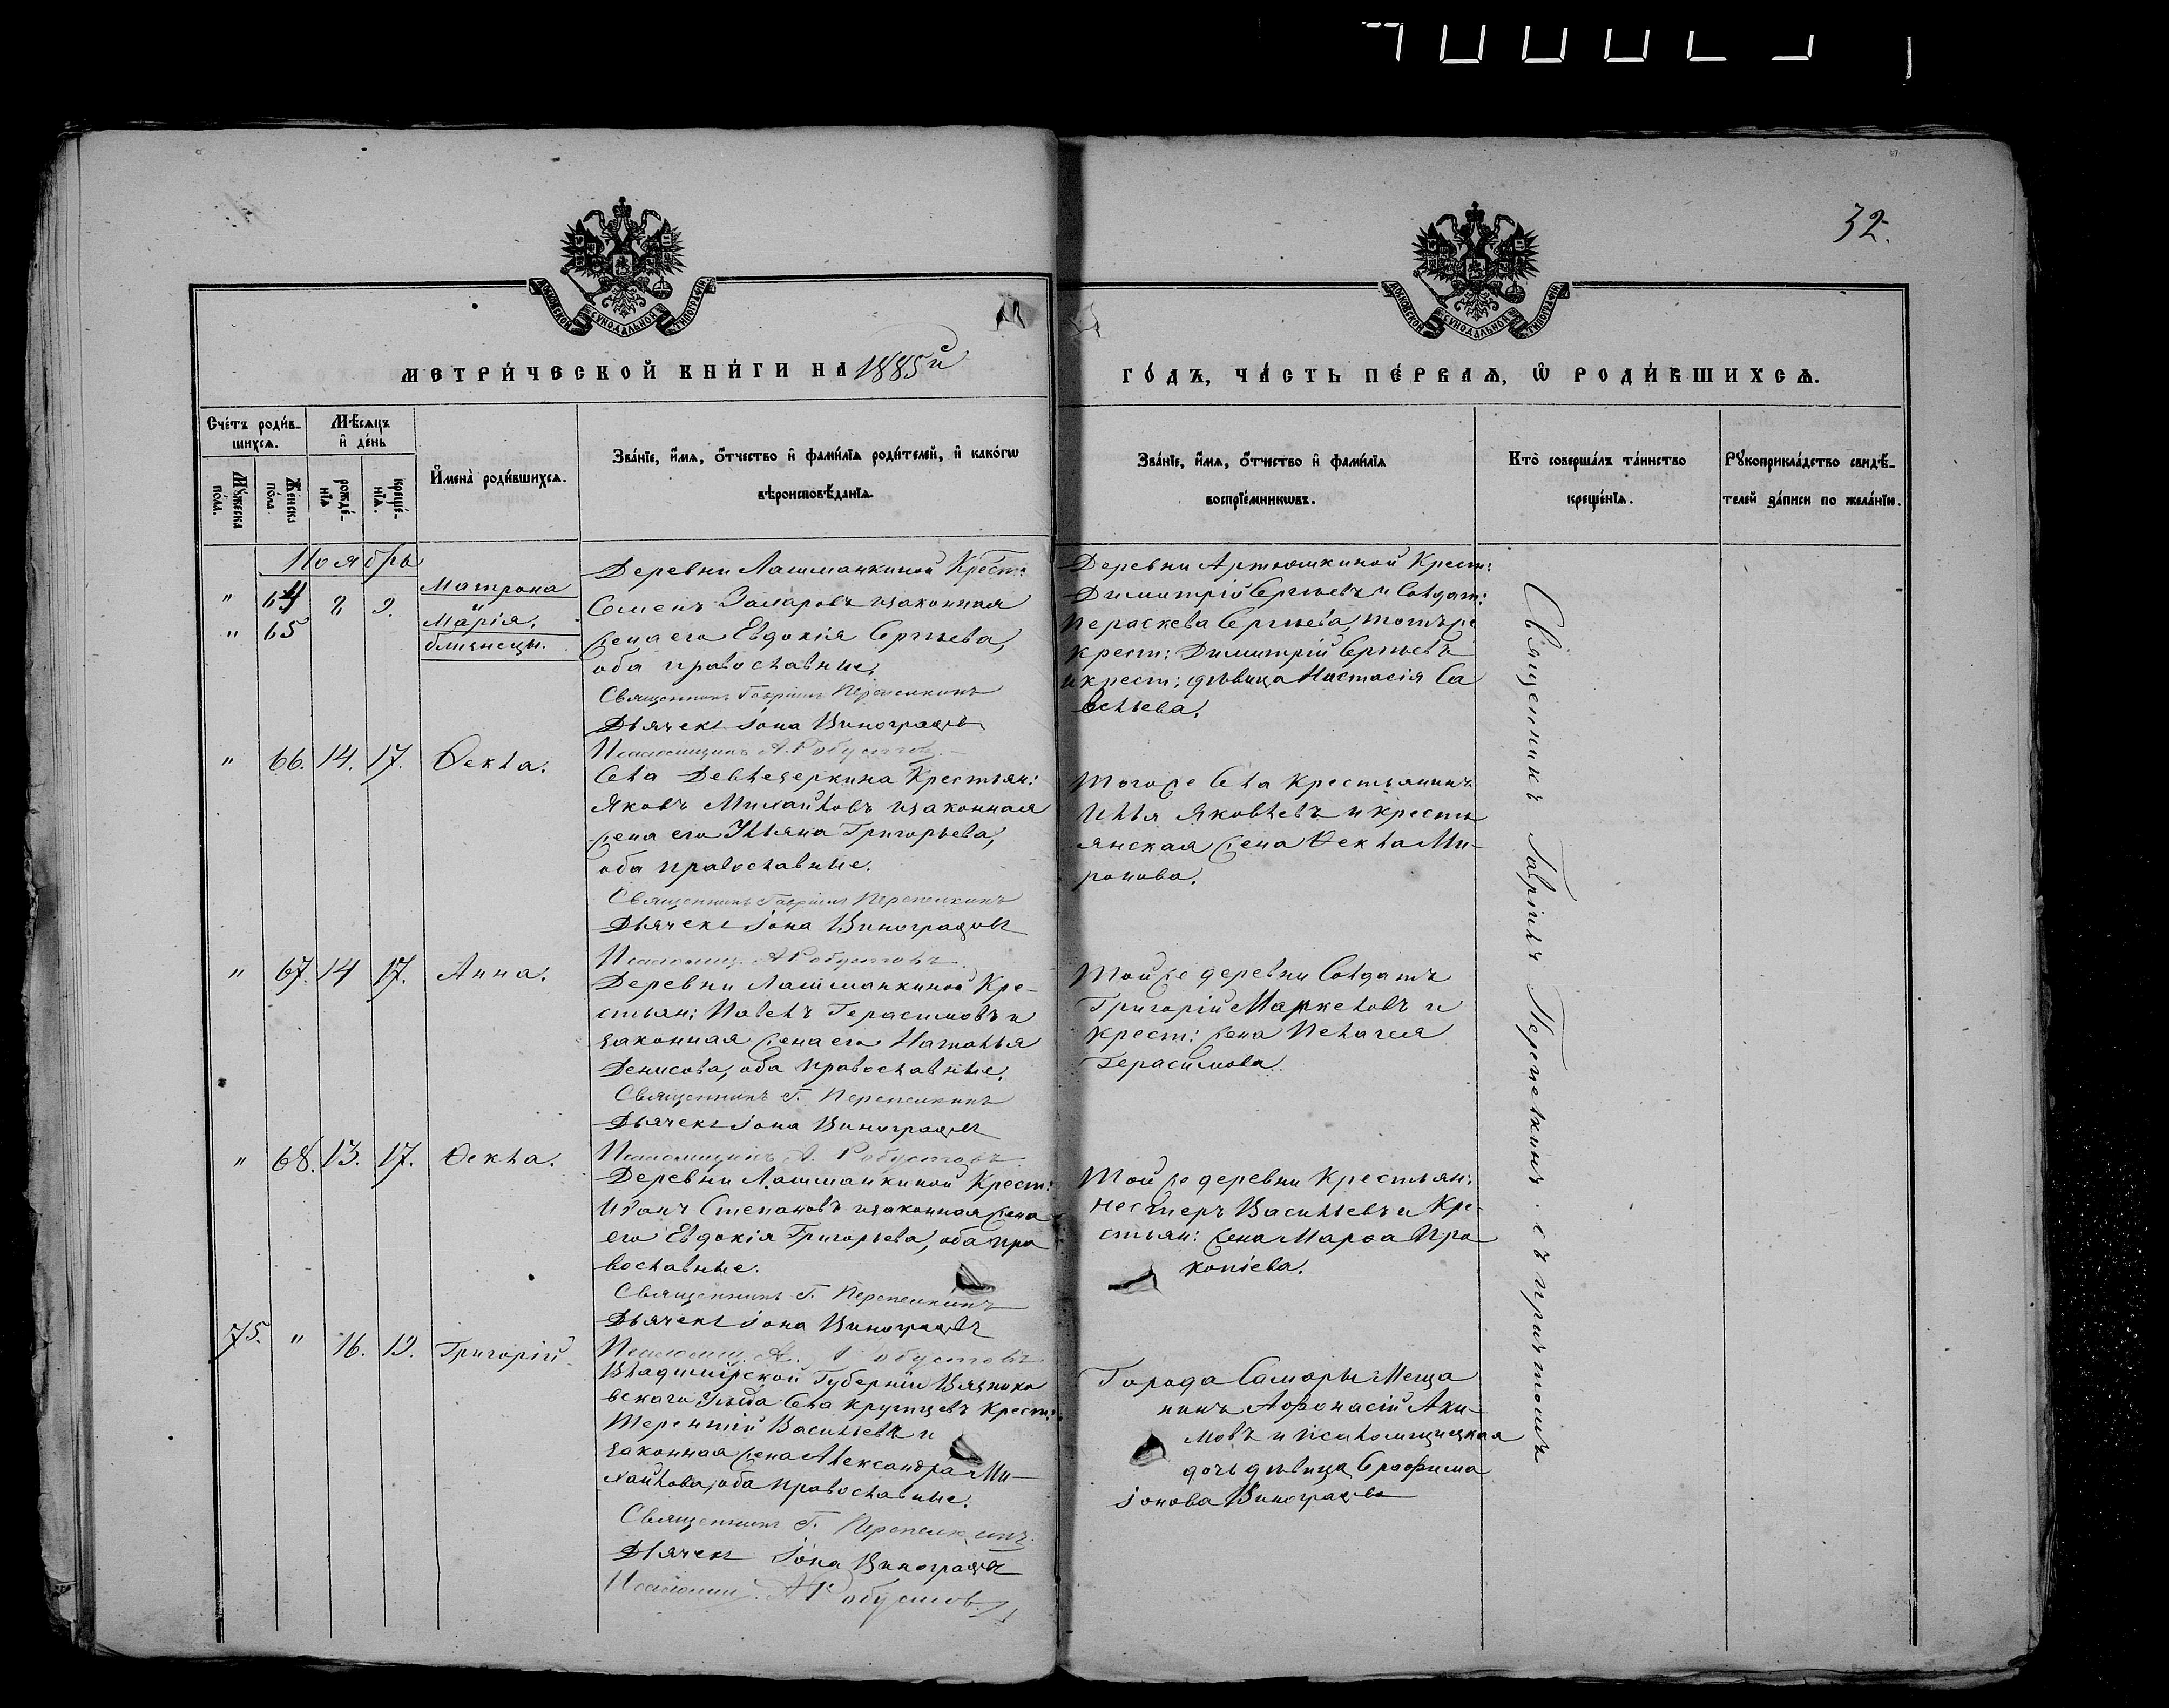 32.
МОСКОВСКОЙ СѴНОДАЛЬНОЙ ТИПОГРАФІИ
МОСКОВСКОЙ СѴНОДАЛЬНОЙ ТИПОГРАФІИ
МЕТРИ́ЧЕСКОЙ КНИ́ГИ НА 1885й
ГО́ДЪ, ЧА́СТЬ ПЕ́РВАѦ, Ѽ РОДИ́ВШИХСѦ.
Сче́тъ роди́в-
шихсѧ.
Мѣ́сѧцъ
и҆ де́нь
Мꙋ́жеска
по́ла.
Же́нска
по́ла
рожде́-
нїѧ
креще́-
нїѧ.
И҆мена̀ роди́вшихсѧ.
Зва́нїе, и҆́мѧ, ѻ҆́тчество и҆ фами́лїѧ роди́телей, и҆ како́гѡ
вѣроисповѣ́данїѧ.
Зва́нїе, и҆́мѧ, ѻ҆́тчество и҆ фами́лїѧ
воспрїе́мникѡвъ.
Кто̀ соверша́лъ та́инство
креще́нїѧ.
Рꙋкоприкла́дство свидѣ́-
телей за́писи по жела́нїю.
Ноябрь
" 64 8 9. Матрона
и
" 65 Марія.
близнецы.
Деревни Лашманкиной Крест:
Семенъ Захаровъ и законная
жена его Евдокія Сергѣева,
оба православные.
Священникъ Гавріилъ Перепелкинъ
Дьячекъ Іона Виноградовъ
Псаломщикъ А. Робустовъ.
Деревни Артюшкиной Крест:
Димитрій Сергѣевъ и Солдат:
Параскева Сергѣева, тотъ же
крест: Димитрій Сергѣевъ
и крест: дѣвица Настасія Са
вельева.
" 66. 14. 17. Ѳекла.
Села Девлезеркина Крестьян:
Яковъ Михайловъ и законная
жена его Ульяна Григорьева,
оба православные.
Священникъ Гавріилъ Перепелкинъ
Дьячекъ Іона Виноградовъ
Псаломщ. А Робустовъ.
Того же Села Крестьянинъ
Илья Яковлевъ и кресть
янская жена Ѳекла Ми-
ронова.
" 67. 14 17. Анна.
Деревни Лашманкиной Кре-
стьян: Павелъ Герасимовъ и
законная жена его Наталья
Денисова, оба православные.
Священникъ Г. Перепелкинъ
Дьячекъ Іона Виноградовъ
Псаломщикъ А. Робустовъ.
Той же деревни Солдатъ
Григорій Маркеловъ и
крест: жена Пелагея
Герасимова.
" 68. 13. 17. Ѳекла.
Деревни Лашманкиной Крест:
Иванъ Степановъ и законная жена
его Евдокія Григорьева, оба пра
вославные.
Священникъ Г. Перепелкинъ
Дьячекъ Іона Виноградовъ
Псаломщ. А. Робустовъ
Той же деревни Крестьян:
Нестеръ Васильевъ и Кре-
стьян: жена Марѳа Про
копіева.
75. " 16. 19. Григорій.
Владимірской Губерніи Вязнико
вскаго Уѣзда Села Крутцевъ Крест:
Терентій Васильевъ и
законная жена Александра Ми-
хайлова, оба православные.
Священникъ Г. Перепелкинъ.
Дьячекъ Іона Виноградовъ
Псаломщ. А Робустовъ.
Города Самары Меща
нинъ Афонасій Аки-
мовъ и псаломщицкая
дочь дѣвица Серафима
Іонова Виноградова
Священникъ Гавріилъ Перепелкинъ съ причтомъ